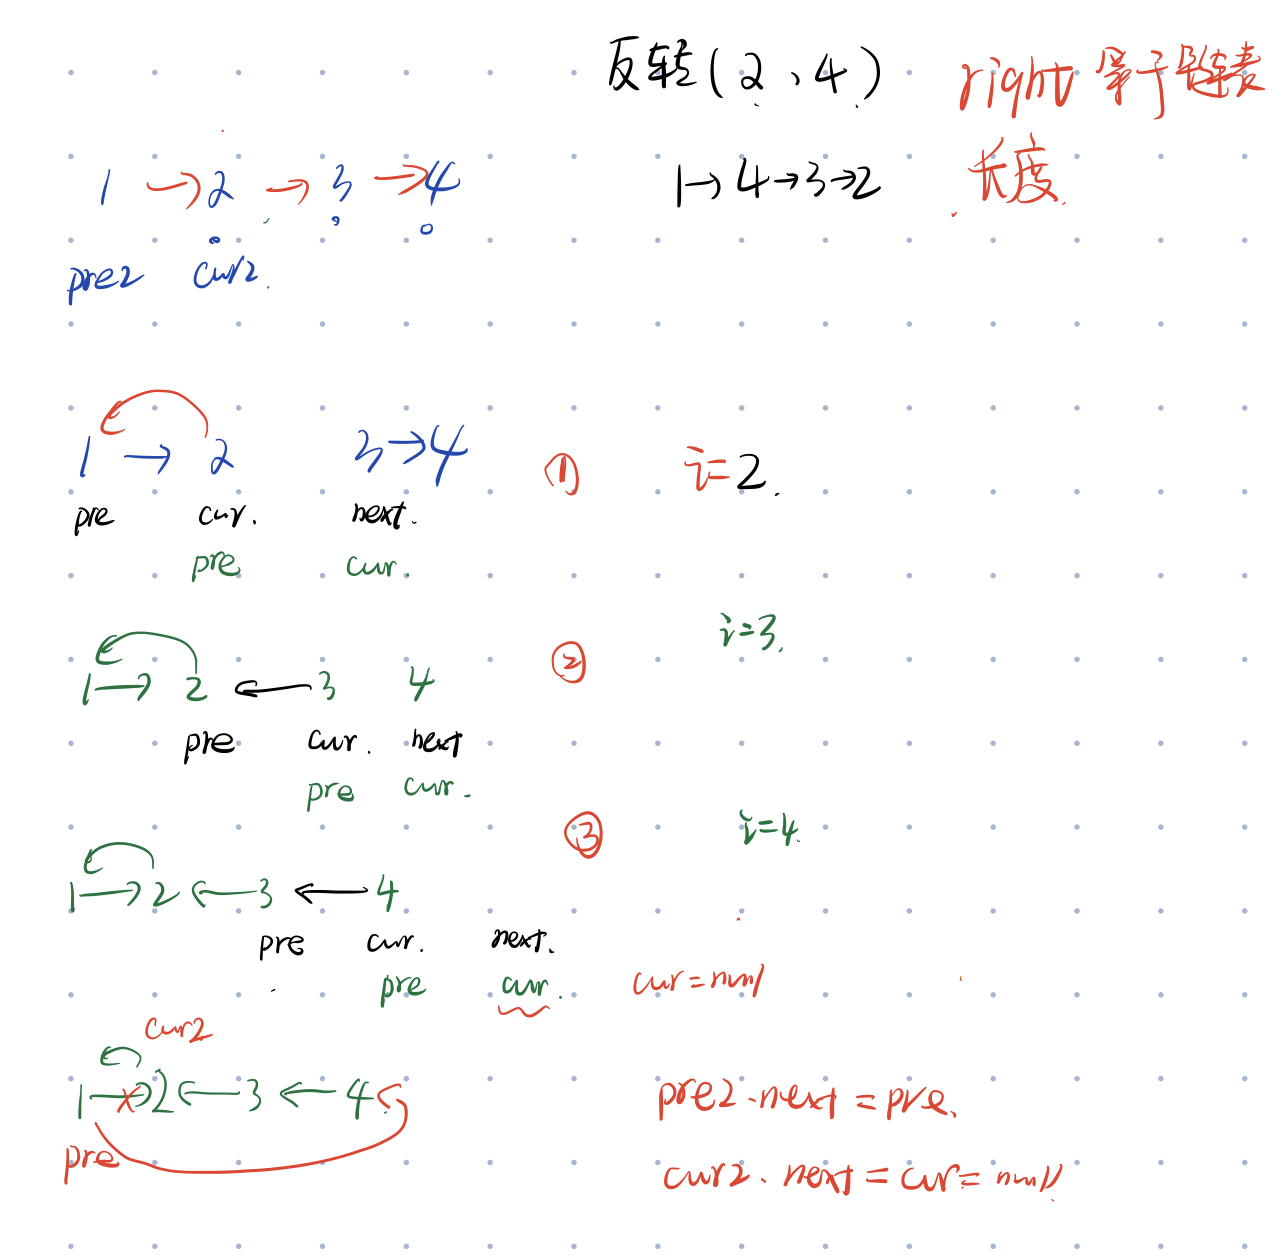 反转(2、4)
right 等于链表
长度
1 → 2 → 3 → 4
1→4→3→2
pre2 cur2.
1 → 2 3→4
① i=2.
pre cur. next.
pre cur.
i=3.
1→2 ← 3 4
②
pre cur. next
pre cur.
③ i=4.
1→2 ← 3 ← 4
pre cur. next.
pre cur.
cur=null
cur2
1→2 ← 3 ← 4
pre
pre2.next = pre.
cur2.next = cur = null